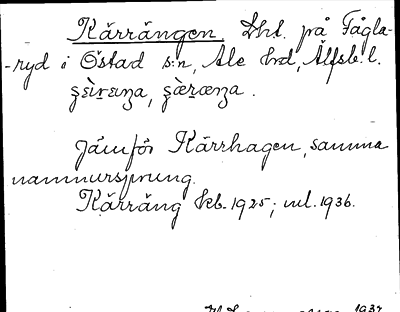 Kärrängen, Lht. på Fågla-
-ryd i Östad s:n, Ale hd, Älfsb. l.
Jämför Kärrhagen, samma
namnursprung.
Kärräng kb. 1925; ml. 1936.
1937